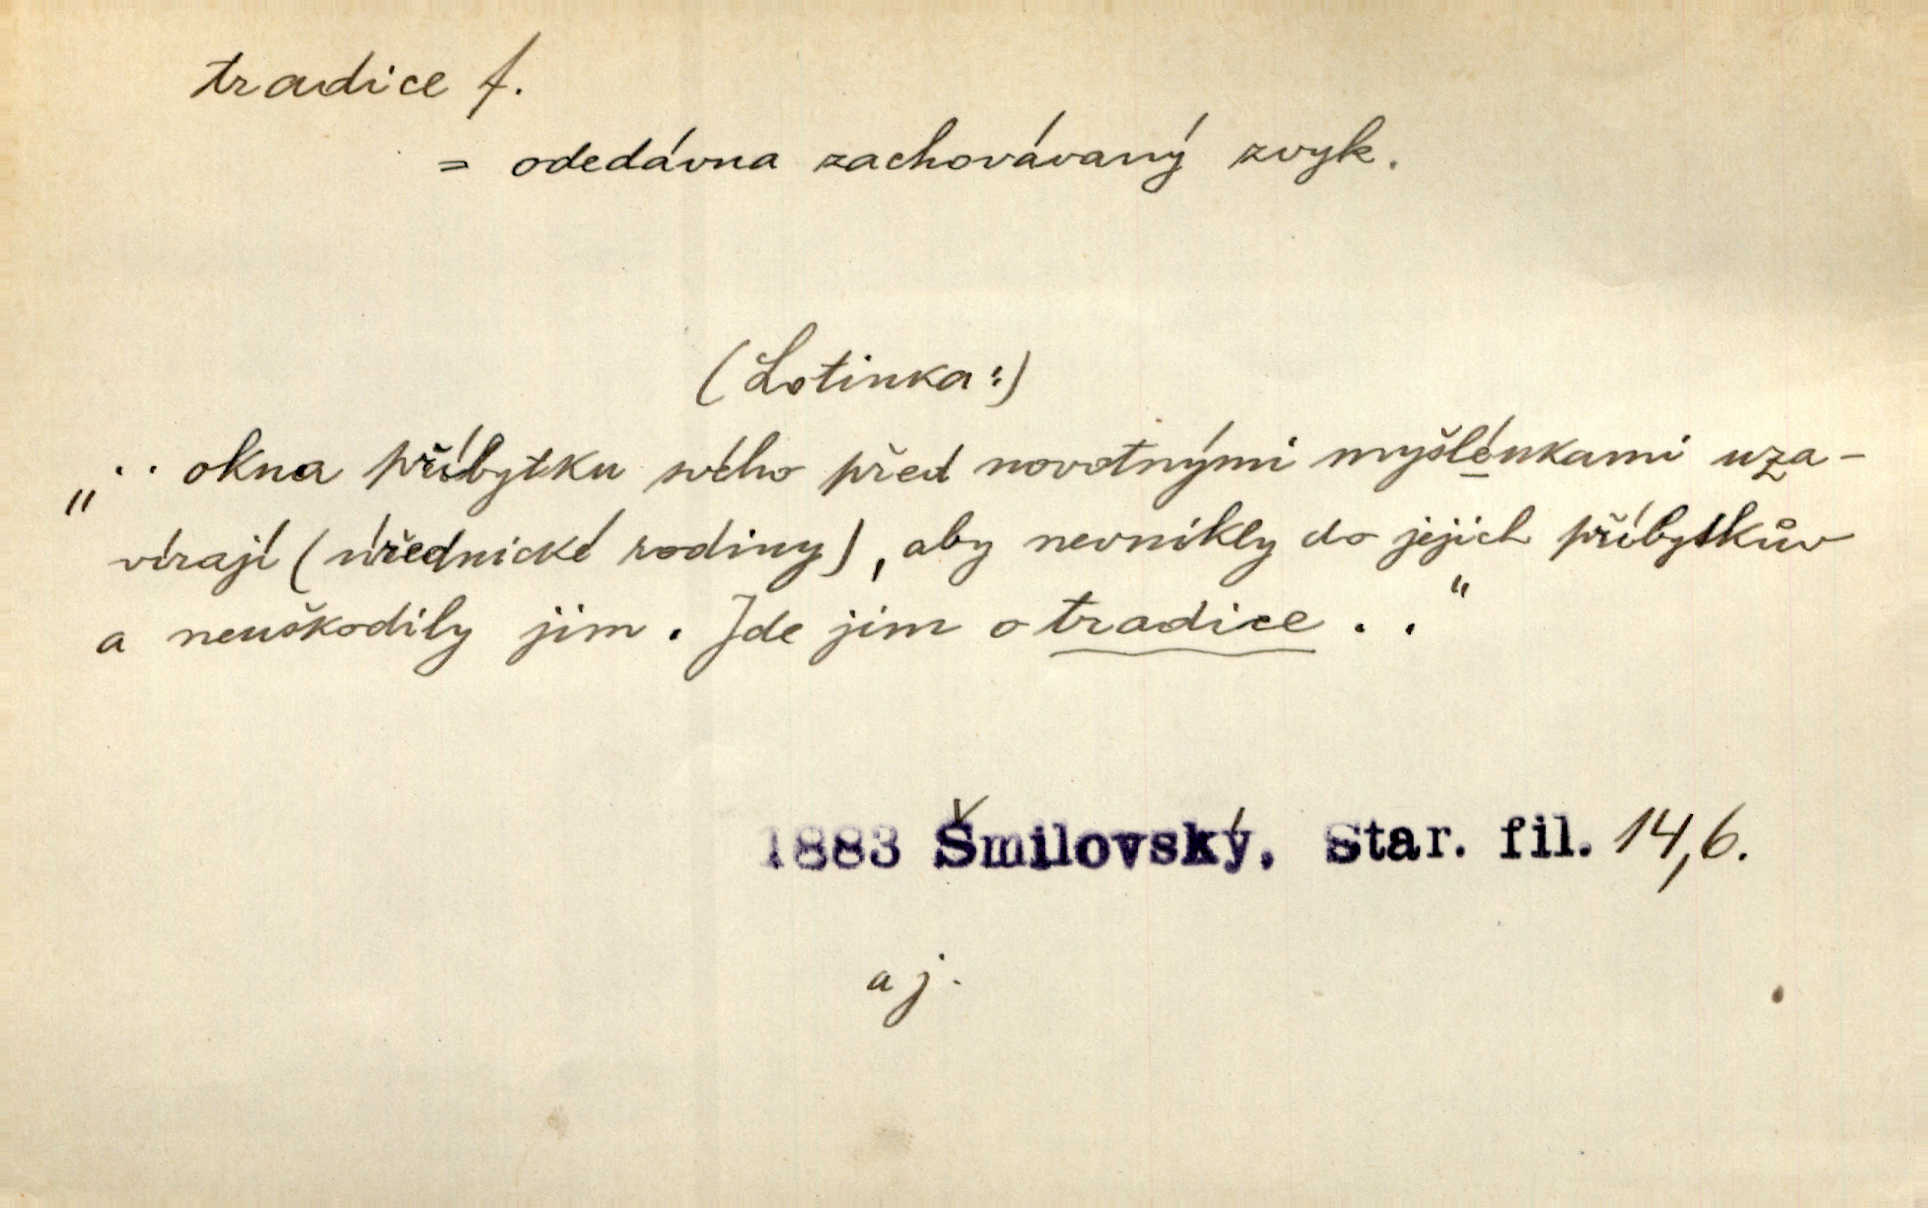 tradice f.
= odedávna zachovávaný zvyk.
(Lotinka:)
„ .. okna příbytku svého před novotnými myšlénkami uza-
vírají (úřednické rodiny), aby nevnikly do jejich příbytkův
a neuškodily jim. Jde jim o tradice . . "
1883 Šmilovský. Star. fil. 14,6.
a j.